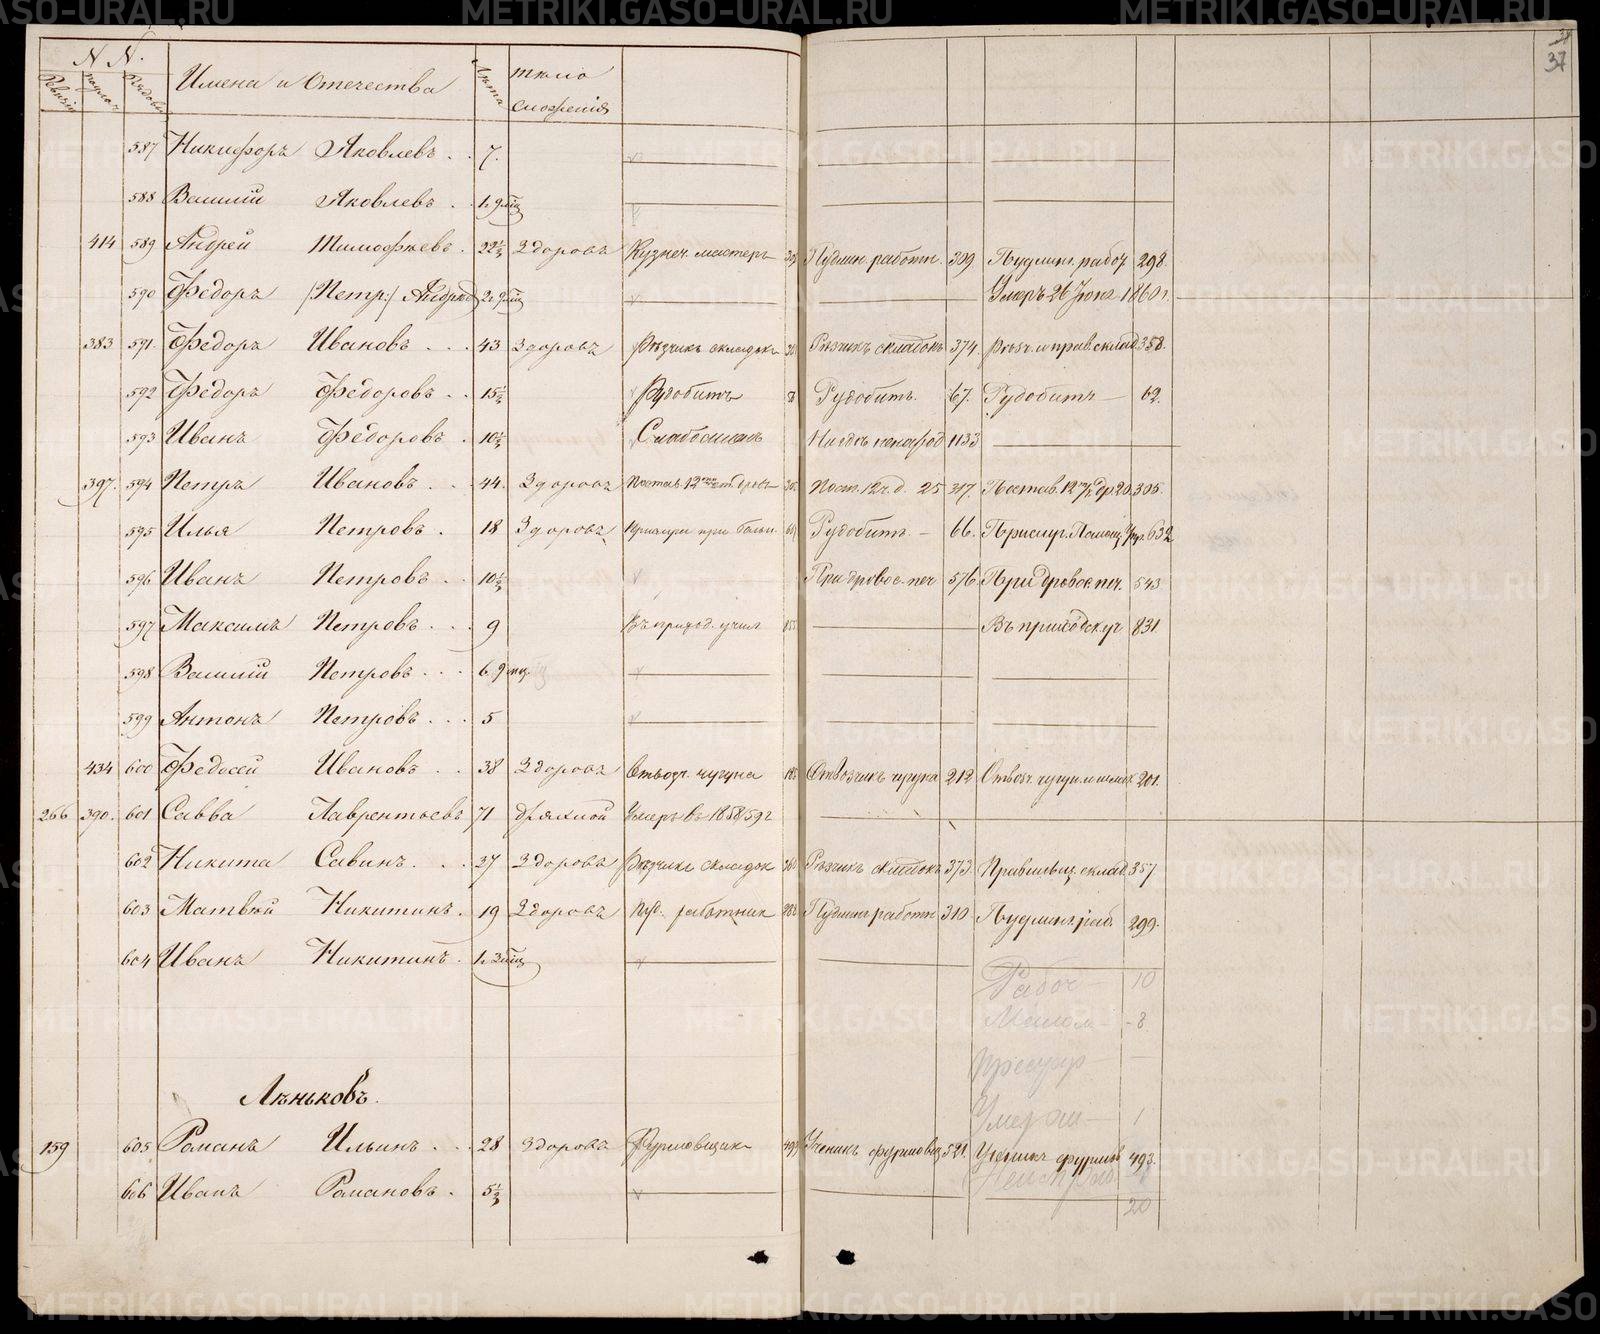 N N.
Имена и Отечества
Лѣта
тѣло
сложенія
37
587 Никифоръ Яковлевъ . . 7.
588 Василій Яковлевъ . 1. 9 мц
414 589 Андрей Тимофѣевъ. 22½ Здоровъ Кузнеч. мастеръ Пудлин. работн. 309 Пудлин. работ 298.
590 Федоръ /Петр:/ Андрѣе 2. 9 мц Умеръ 26 Іюня 1860 г.
383 591 Федоръ Ивановъ . . . 43 Здоровъ Рѣзчикъ складокъ Рѣзчикъ складокъ 374. 358.
592 Федоръ Федоровъ . . 15½ Рудобитъ Рудобитъ. 67. Рудобитъ 62.
593 Иванъ Федоровъ . 10½ Слабосиленъ 1133
397. 594 Петръ Ивановъ . . 44. Здоровъ Постав. 12 Пост. 12 ч. д. 25 317. Постав. 12 305.
595 Илья Петровъ . 18 Здоровъ Рудобитъ. 66. 632
596 Иванъ Петровъ . . 10½ При дровос. печ 576. При дровос. печ. 543
597 Максимъ Петровъ . . . 9 Въ приход. учил Въ приходск. уч 831.
598 Василій Петровъ . . . 6. 9 мц.
599 Антонъ Петровъ . . . 5
434 600 Федосей Ивановъ . . 38 Здоровъ Отвозч. чугуна Отвозчикъ чугуна 212 Отвозч. 201.
266 390. 601 Савва Лаврентьевъ 71 Дряхлой Умеръ въ 1858/59 г
602 Никита Савинъ. . . 37 Здоровъ Рѣзчикъ складок Рѣзчикъ складокъ 373. Правильщ. склад. 357
603 Матвѣй Никитинъ. 19 Здоровъ Пуд. работник Пудлин. работн 310 Пудлинг. раб. 299.
604 Иванъ Никитинъ . 1. 3 мц
Рабоч — 10
Малол — 8
Умерш — 1
Лѣньковъ.
159 605 Романъ Ильинъ . . . 28 Здоровъ Фурмовщик Ученикъ фурмовщ 521. Ученикъ фурмов 493.
606 Иванъ Романовъ . 5½
20
METRIKI.GASO-URAL.RU